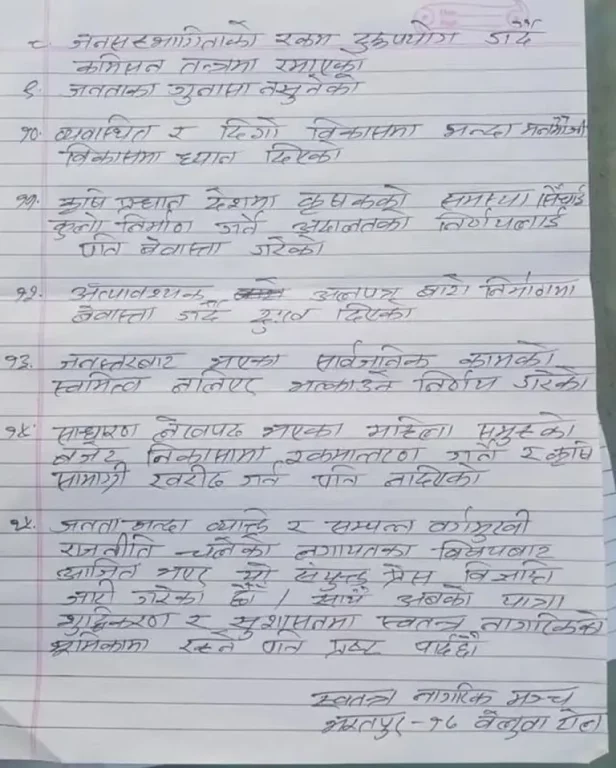 ८. जनसहभागिताको रकम दुरुपयोग गर्दै
कमिसन तन्त्रमा रमाएको
९. जनताका गुनासो नसुनेको
१०. व्यवस्थित र दिगो विकासमा भन्दा मनमौजी
विकासमा ध्यान दिएको
११. कृषि प्रधान देशमा कृषकको समस्या सिँचाई
कुलो निर्माण गर्ने अदालतको निर्णयलाई
पनि बेवास्ता गरेको
१२. अत्यावश्यक अलपत्र बाटो निर्माणमा
बेवास्ता गर्दै दुःख दिएको
१३. जनस्तरबाट भएका सार्वजनिक कामको
स्वमित्व नलिएर भत्काउने निर्णय गरेको
१४. साधारण लेखपढ भएका महिला समुहको
बजेट निकासामा रकमान्तरण गर्न र कृषि
सामाग्री खरीद गर्न पनि नदिएको
१५. जनता भन्दा व्यक्ति र सम्पन्न वर्गमुखी
राजनीति चलेको लगायतका विषयबाट
आजित भएर यो संयुक्त प्रेस विज्ञप्ति
जारी गरेका छौं। साथै अबको यात्रा
शुद्धिकरण र सुशासनमा स्वतन्त्र नागरिकको
भूमिकामा रहने पनि प्रष्ट पार्दछौं
स्वतन्त्र नागरिक मञ्च
भरतपुर-१६ बेलुवा टोल